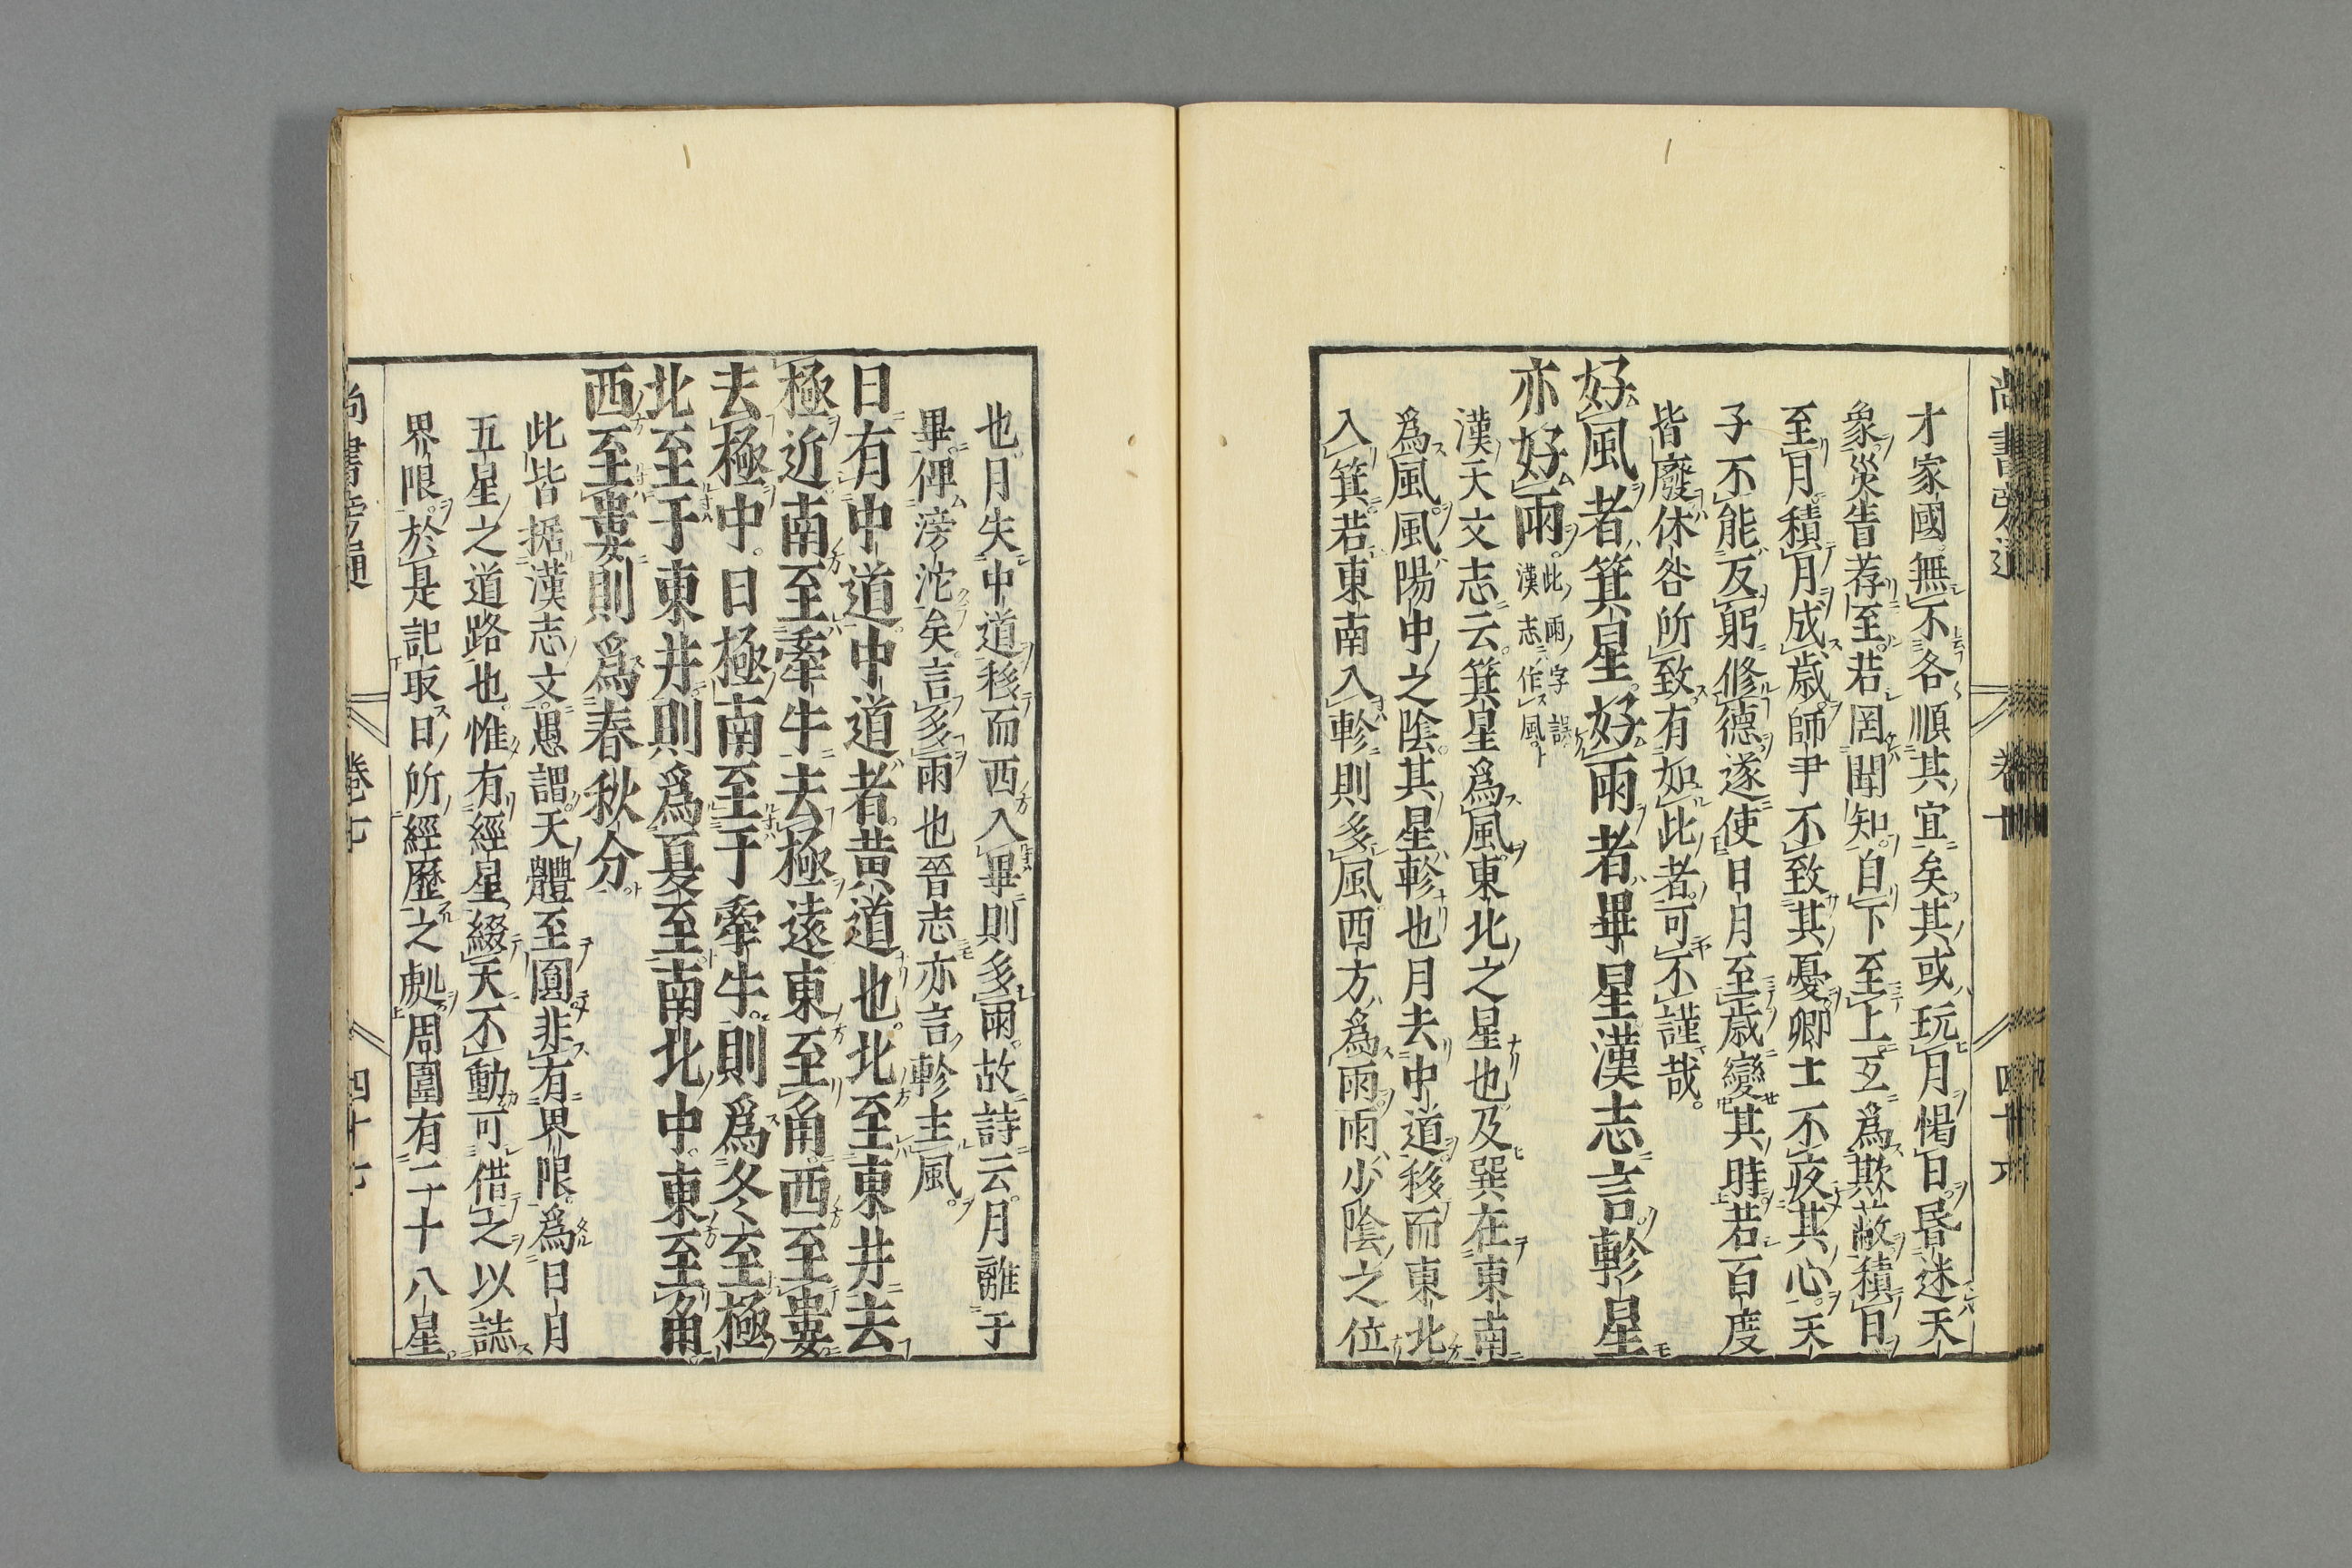 才家國無不各順其宜矣其或玩月愒日昏迷天
象災眚荐至若罔聞知自下至上互爲欺蔽積日
至月積月成歲師尹不致其憂卿士不夜其心天
子不能反躬修德遂使日月至歲變其時若百度
皆廢休咎所致有如此者可不謹哉
好風者箕星好雨者畢星漢志言軫星
亦好雨此雨字誤漢志作風
漢天文志云箕星爲風東北之星也及巽在東南
爲風風陽中之陰其星軫也月去中道移而東北
入箕若東南入軫則多風西方爲雨雨少陰之位
也月失中道移而西入畢則多雨故詩云月離于
畢俾滂沱矣言多雨也晉志亦言軫主風
日有中道中道者黄道也北至東井去
極近南至牽牛去極遠東至角西至婁
去極中日極南至于牽牛則爲冬至極
北至于東井則爲夏至南北中東至角
西至婁則爲春秋分
此皆據漢志文愚謂天體至圓非有界限爲日月
五星之道路也惟有經星綴天不動可借之以誌
界限於是記取日所經歷之處周圍有二十八星
尚書旁通 卷七 四十七